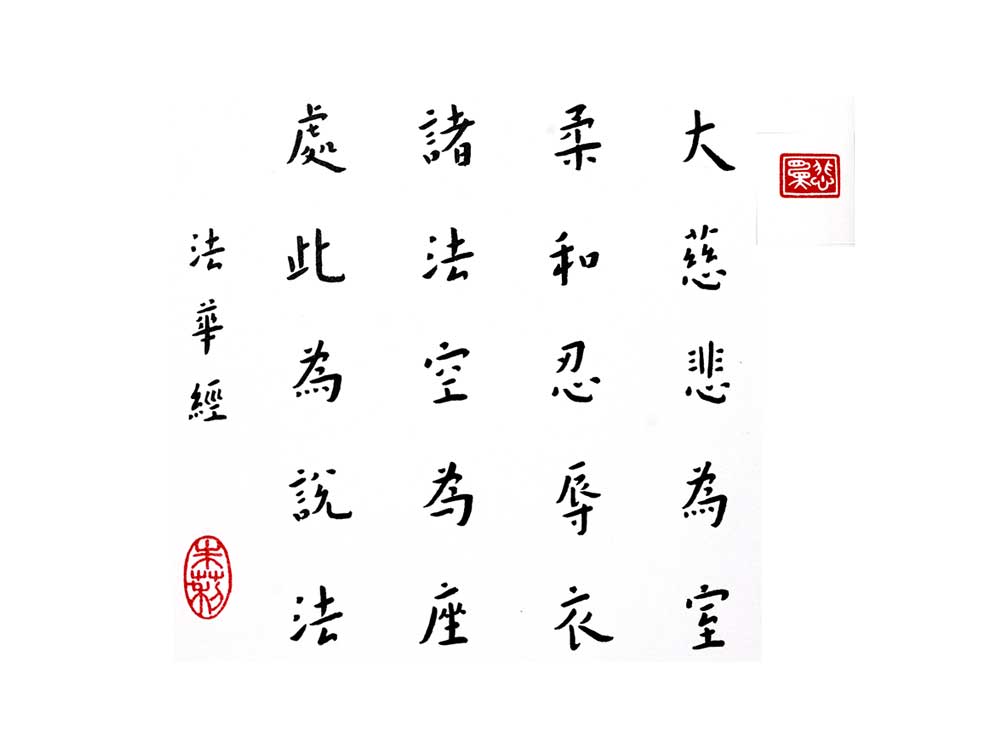 大慈悲為室
柔和忍辱衣
諸法空為座
處此為說法
法華經
朱莉